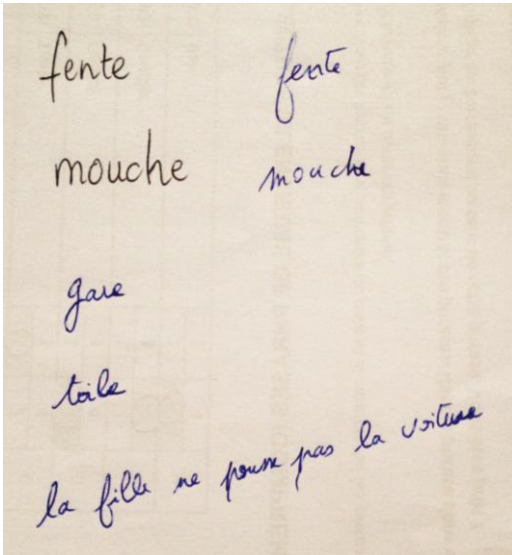 fente fente
mouche mouche
gare
toile
la fille ne pousse pas la voiture